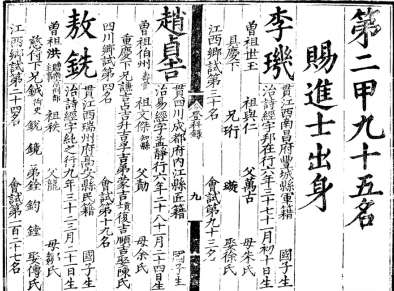 第二甲九十五名
賜進士出身
李璣
貫江西南昌府豐城縣軍籍
國子生
治詩經字邦在行六年三十七十一月初十日生
曾祖世玉
祖與仁
父萬古
母朱氏
具慶下
兄珩
璇
娶徐氏
江西鄉試第三十名
會試第九十三名
登科錄
九
趙貞吉
貫四川成都府內江縣匠籍
國子生
治易經字孟靜行六年二十八十一月二十四日生
曾祖伯州
祖文傑
知縣
父勣
母余氏
重慶下
娶陳氏
四川鄉試第四名
會試第十九名
敖銑
貫江西瑞州府高安縣民籍
國子生
治詩經字純之行九年三十三月二十一日生
曾祖洪
祖秩
父龍
母鄒氏
慈侍下
兄鉞
銳
鏡
弟銓
鈞
鐘
娶傅氏
江西鄉試第二十四名
會試第二百二十七名